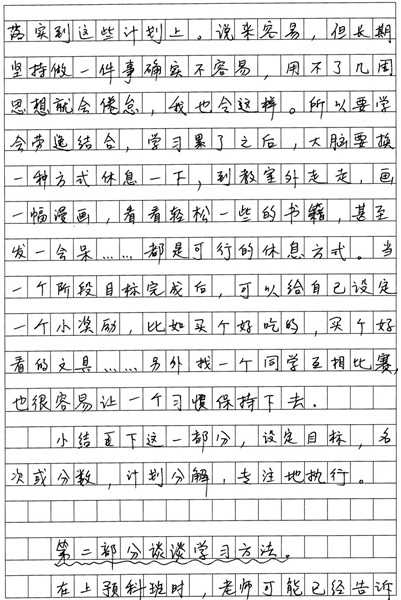 落实到这些计划上。说来容易，但长期
坚持做一件事确实不容易，用不了几周
思想就会倦怠，我也会这样。所以要学
会劳逸结合，学习累了之后，大脑要换
一种方式休息一下，到教室外走走，画
一幅漫画，看看轻松一些的书籍，甚至
发一会呆……都是可行的休息方式。当
一个阶段目标完成后，可以给自己设定
一个小奖励，比如买个好吃的，买个好
看的文具……另外找一个同学互相比赛，
也很容易让一个习惯保持下去.
小结一下这一部分，设定目标，名
次或分数，计划分解，专注地执行。
第二部分谈谈学习方法。
在上预科班时，老师可能已经告诉